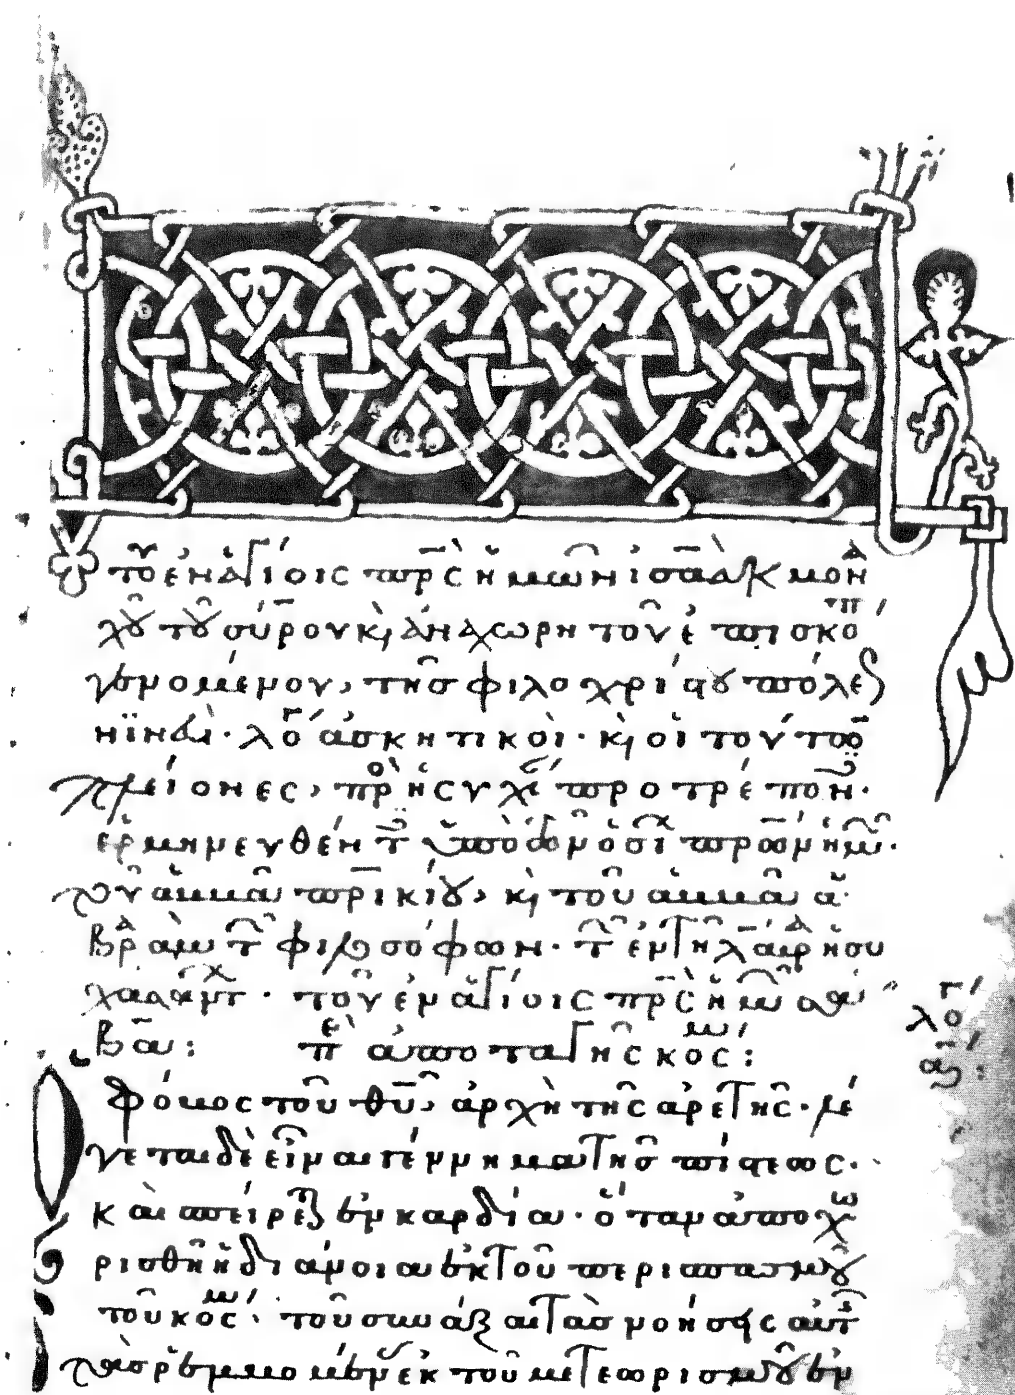 τοῦ ἐν ἁγίοις πρς ἡμῶν ἰσαὰκ μοναχοῦ
τοῦ σύρου κ ἀναχωρητοῦ ἐπισκόπου
γενομένου, τῆς φιλοχρίστου πόλεως
νϊνευὶ· λόγοι ἀσκητικοὶ· κ οἱ τούτου
πλείονες, πρὸς ἡσυχίαν προτρέπον·
ἑρμηνευθέντες ὑπὸ τῶν ὁσίων πρων ἡμῶν·
τοῦ ἀμμᾶ πατρικίου, κ τοῦ ἀμμᾶ ἀ
βρααμίου τῶν φιλοσόφων· τῶν ἐν τῇ λαύρᾳ ἡσυ
χαστῶν· τοῦ ἐν ἁγίοις πρς ἡμῶν σά
βα: περὶ ἀποταγῆς κόσμου:
λόγος α
Ὁ φόβος τοῦ θυ, ἀρχὴ τῆς ἀρετῆς· λέ
γεται δὲ εἶναι γέννημα τῆς πίστεως·
καὶ σπείρεται ἐν καρδίᾳ· ὅταν ἀποχω
ρισθῇ ἡ διάνοια ἐκ τοῦ περισπασμοῦ
τοῦ κόσμου· τοῦ συνάξαι τὰς νοήσεις αὐτῆς
τὰς ῥεμβομένας ἐκ τοῦ μετεωρισμοῦ ἐν